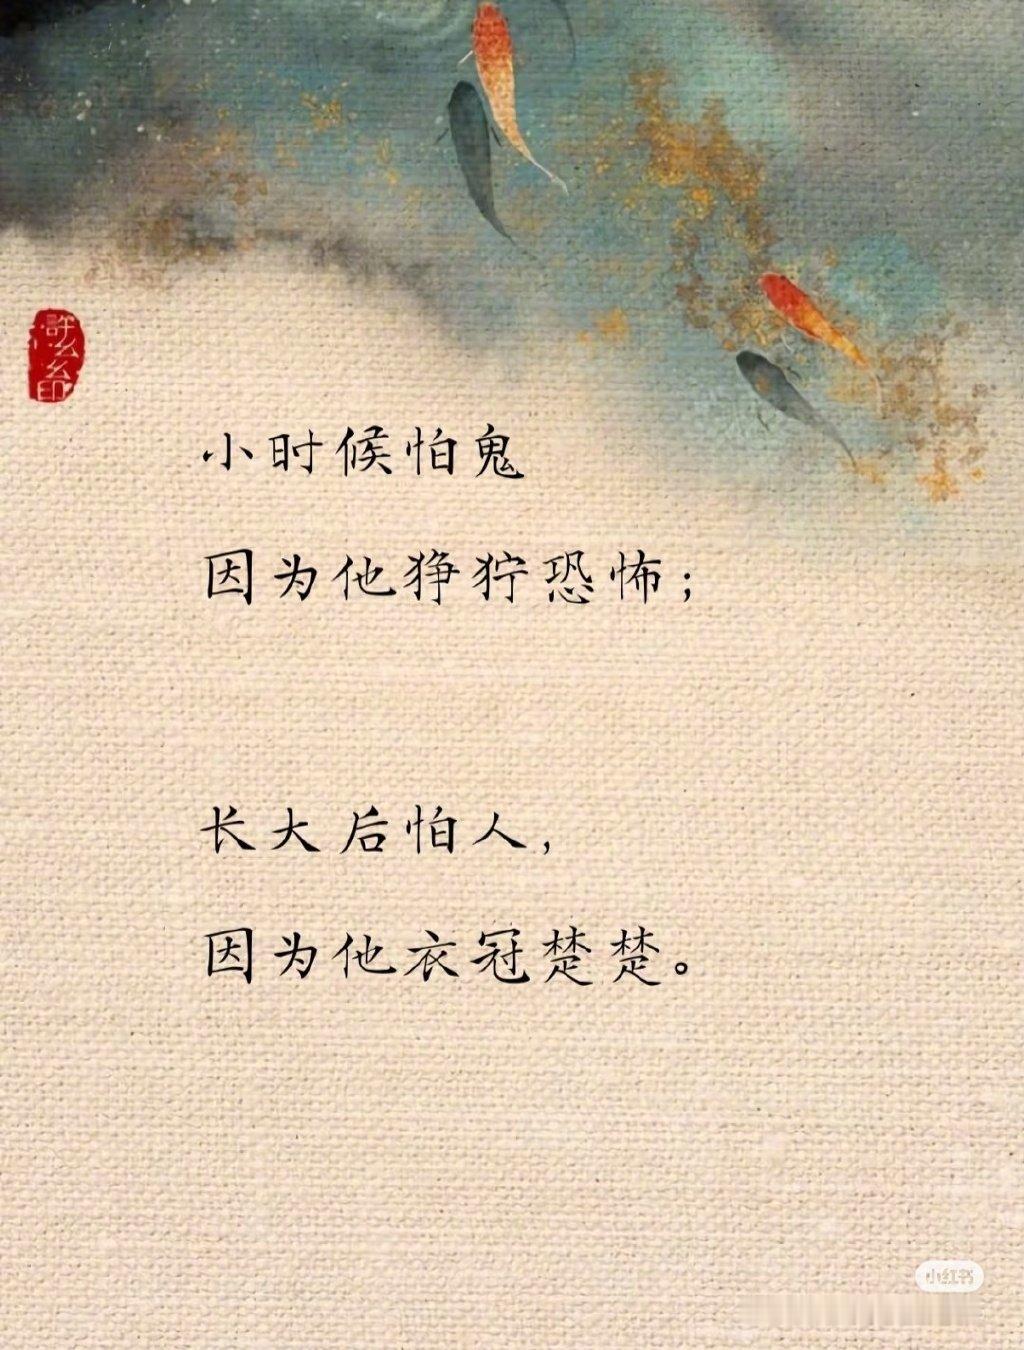 小时候怕鬼
因为他狰狞恐怖；
长大后怕人，
因为他衣冠楚楚。
小红书